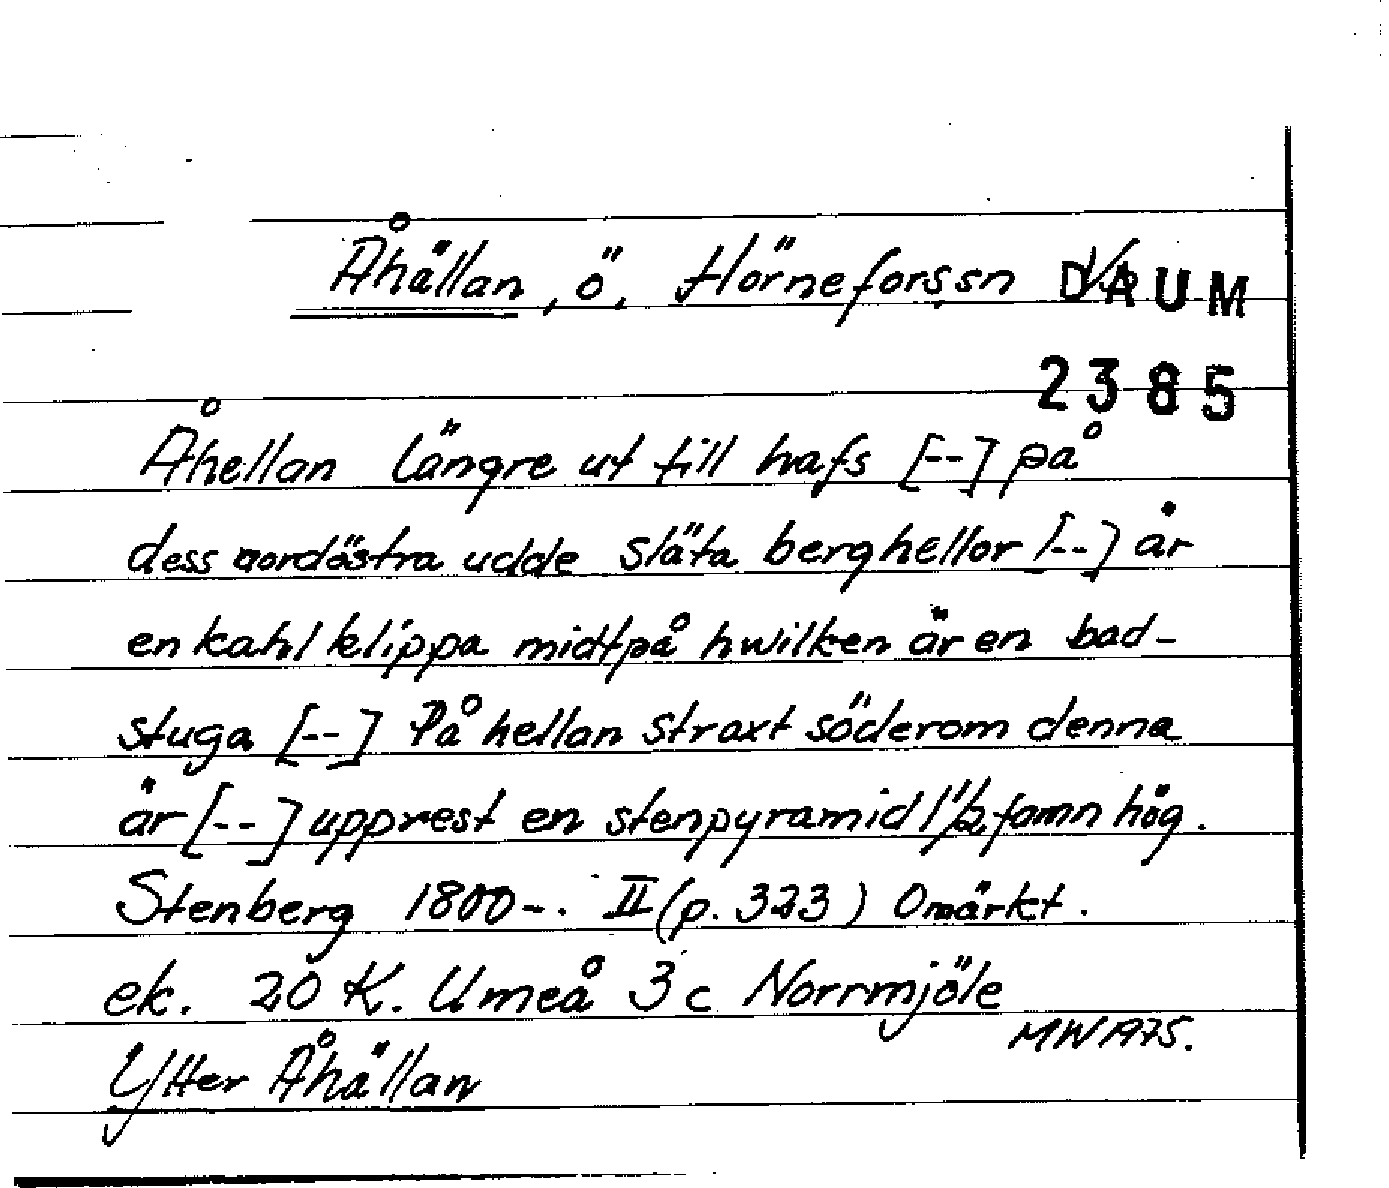 Åhällan, ö, Hörnefors sn DAUM
2385
Åhellan längre ut till hafs [--] på
dess nordöstra udde släta berghellor [--] är
en kahl klippa midtpå hwilken är en bad-
stuga [--] På hellan straxt söderom denna
är [--] upprest en stenpyramid 1 1/2 famn hög.
Stenberg 1800-. II (p. 323) Omärkt.
ek. 20 K. Umeå 3c Norrmjöle
MW 1975.
Ytter Åhällan